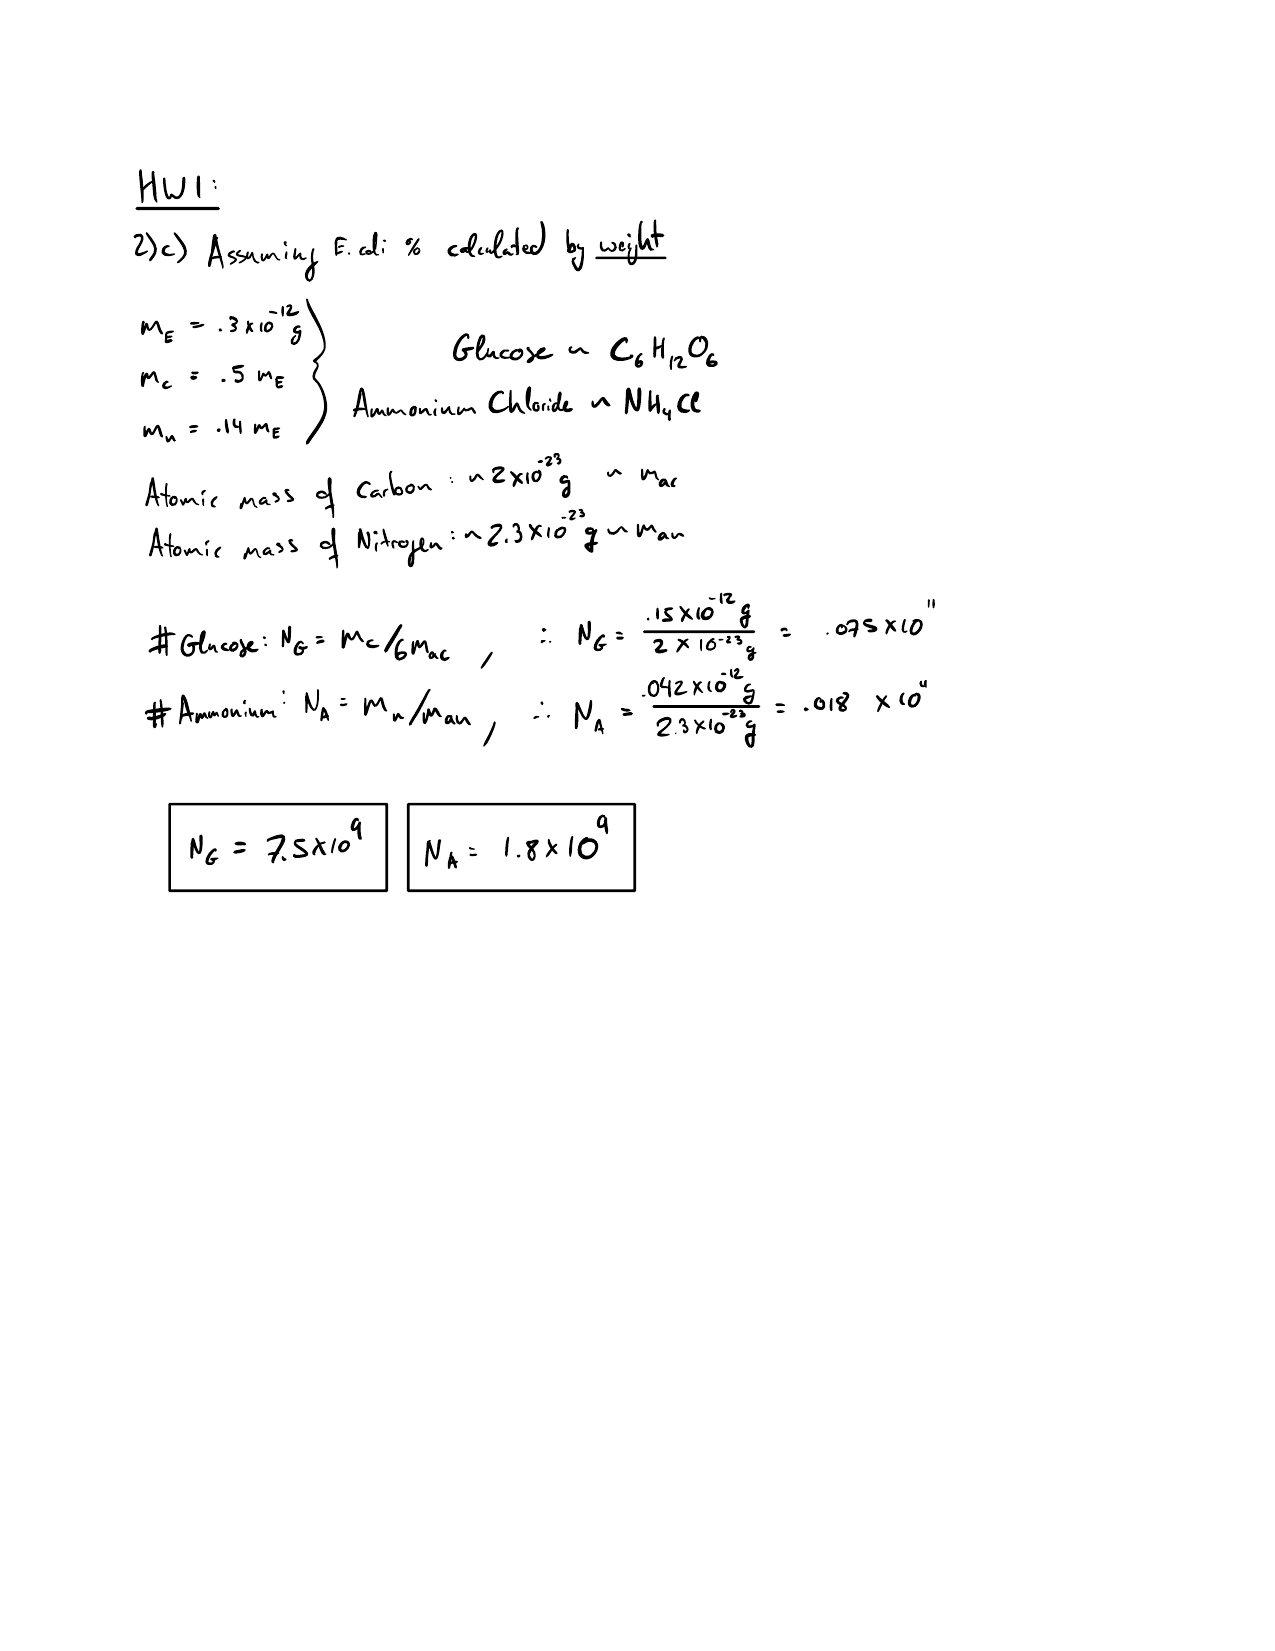 HW1:
2)c) Assuming E. coli % calculated by weight
m_E = .3×10^-12 g
m_c = .5 m_E
m_n = .14 m_E
Glucose ~ C₆H₁₂O₆
Ammonium Chloride ~ NH₄Cl
Atomic mass of Carbon: ~2×10^-23 g ~ m_ac
Atomic mass of Nitrogen: ~2.3×10^-23 g ~ m_an
#Glucose: N_G = m_c/6m_ac, ∴ N_G = .15×10^-12 g / 2×10^-23 g = .075×10^11
#Ammonium: N_A = m_n/m_an, ∴ N_A = .042×10^-12 g / 2.3×10^-23 g = .018 ×10^11
N_G = 7.5×10^9
N_A = 1.8×10^9